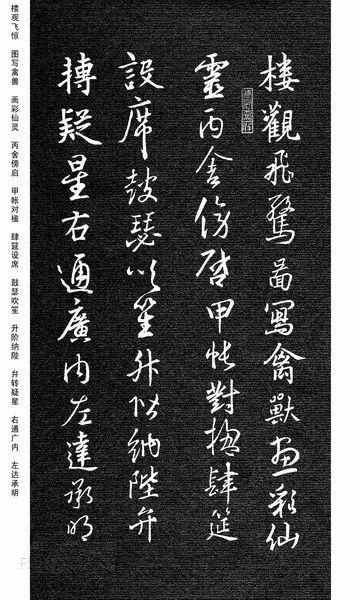 楼觀飛驚啚寫禽獸畫彩仙
靈丙舍傍啓甲帳對楹肆筵
設席鼓瑟吹笙升階納陛弁
轉疑星右通廣内左達承明
楼观飞惊 图写禽兽 画彩仙灵 丙舍傍启 甲帐对楹 肆筵设席 鼓瑟吹笙 升阶纳陛 弁转疑星 右通广内 左达承明